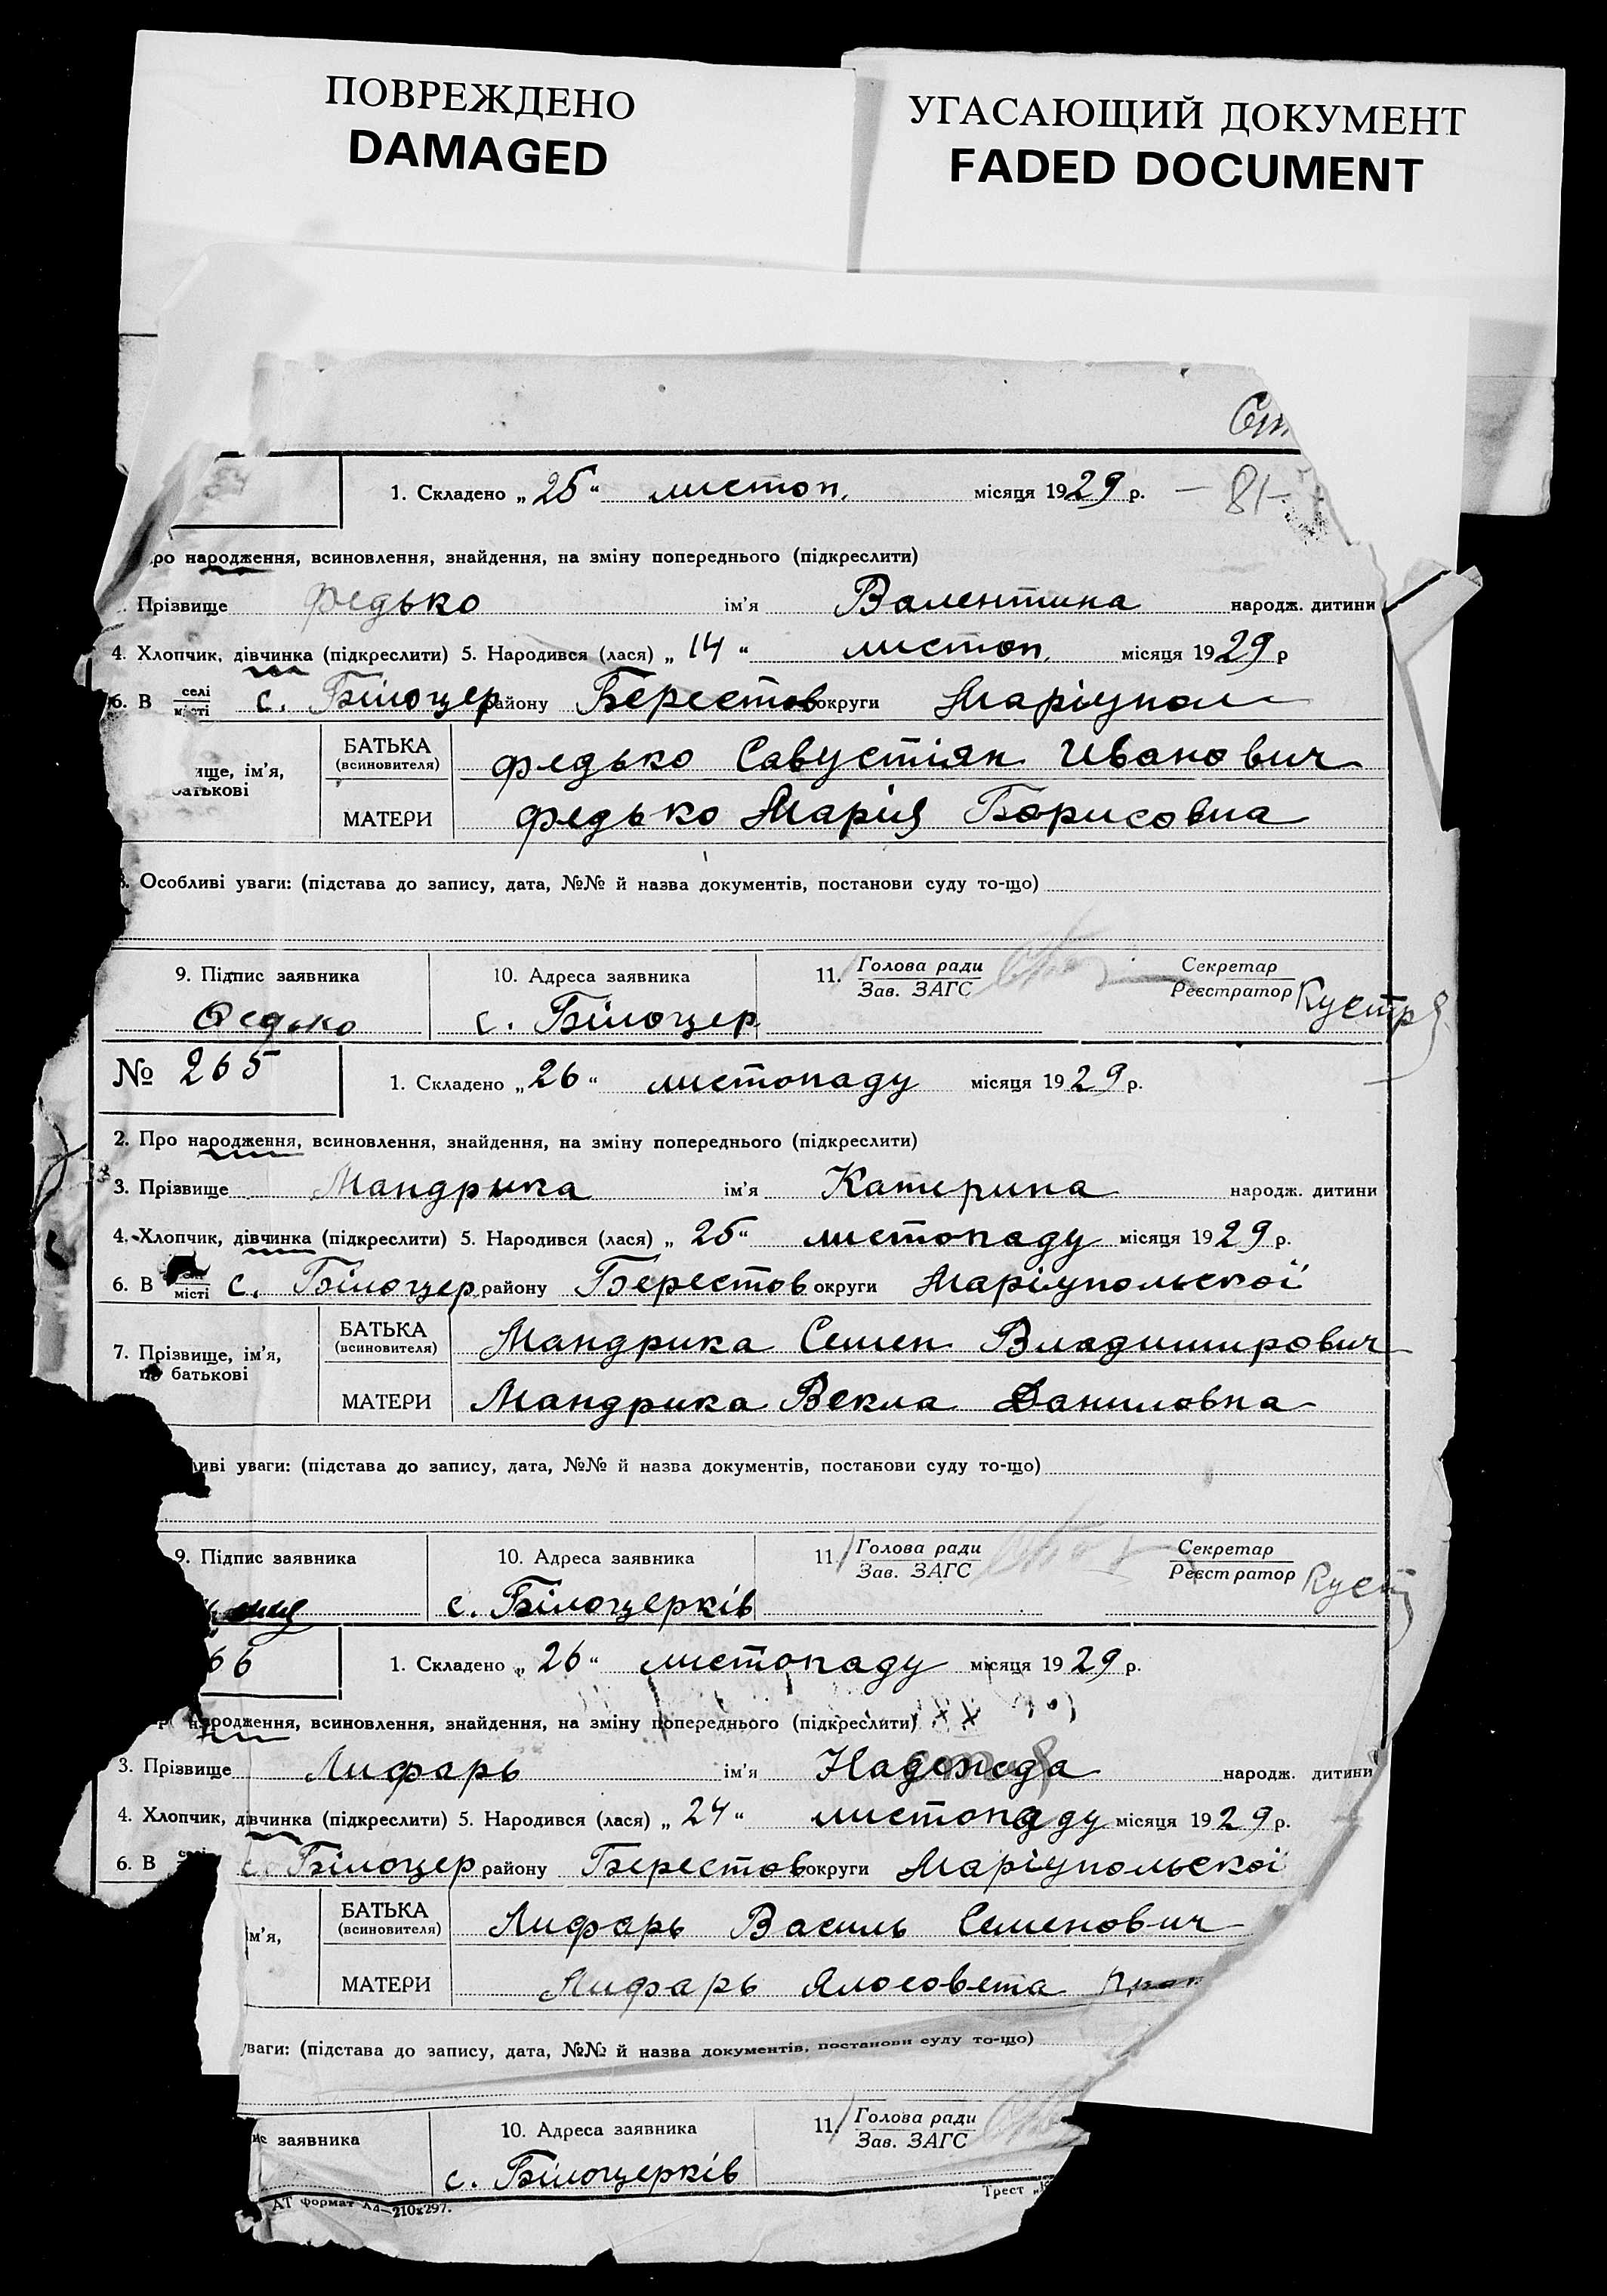 ПОВРЕЖДЕНО
DAMAGED
УГАСАЮЩИЙ ДОКУМЕНТ
FADED DOCUMENT
1. Складено „25“ листоп. місяця 1929 р. — 81 —
ро народження, всиновлення, знайдення, на зміну попереднього (підкреслити)
Прізвище Федько ім'я Валентина народж. дитини
4. Хлопчик, дівчинка (підкреслити) 5. Народився (лася) „14“ листоп. місяця 1929 р
6. В селі місті с. Білоцер району Берестов округи Маріупол
ище, ім'я, батькові
БАТЬКА (всиновителя) Федько Савустіян Иванович
МАТЕРИ Федько Марія Борисовна
8. Особливі уваги: (підстава до запису, дата, №№ й назва документів, постанови суду то-що)
9. Підпис заявника 10. Адреса заявника 11. Голова ради Зав. ЗАГС Секретар Реєстратор
Федько с. Білоцер
№ 265 1. Складено „26“ листопаду місяця 1929 р.
2. Про народження, всиновлення, знайдення, на зміну попереднього (підкреслити)
3. Прізвище Мандрика ім'я Катерина народж. дитини
4. Хлопчик, дівчинка (підкреслити) 5. Народився (лася) „25“ листопаду місяця 1929 р.
6. В місті с. Білоцер району Берестов округи Маріупольскої
7. Прізвище, ім'я, по батькові
БАТЬКА (всиновителя) Мандрика Семен Владимирович
МАТЕРИ Мандрика Векла Даниловна
ливі уваги: (підстава до запису, дата, №№ й назва документів, постанови суду то-що)
9. Підпис заявника 10. Адреса заявника 11. Голова ради Зав. ЗАГС Секретар Реєстратор
с. Білоцерків
66 1. Складено „26“ листопаду місяця 1929 р.
народження, всиновлення, знайдення, на зміну попереднього (підкреслити)
3. Прізвище Лифарь ім'я Надежда народж. дитини
4. Хлопчик, дівчинка (підкреслити) 5. Народився (лася) „24“ листопаду місяця 1929 р.
6. В с. Білоцер району Берестов округи Маріупольскої
ім'я,
БАТЬКА (всиновителя) Лифарь Василь Семенович
МАТЕРИ Лифарь Ялосовета
уваги: (підстава до запису, дата, №№ й назва документів, постанови суду то-що)
ис заявника 10. Адреса заявника 11. Голова ради Зав. ЗАГС
с. Білоцерків
АТ формат А4—210х297. Трест